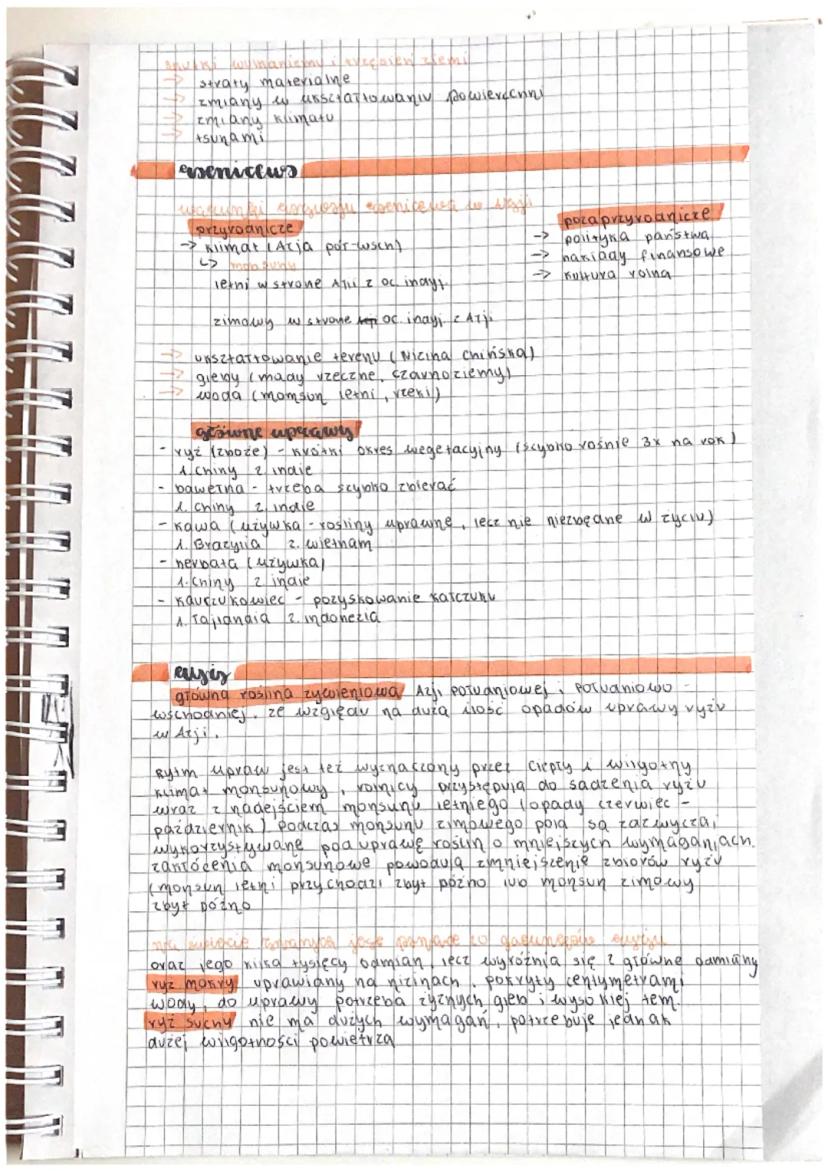 skutki wulkanizmu i trzęsień ziemi
→ straty materialne
→ zmiany w ukształtowaniu powierzchni
→ zmiany klimatu
→ tsunami
rolnictwo
warunki rozwoju rolnictwa w Azji
przyrodnicze
→ klimat (Azja pół-wsch)
↳ monsuny
letni w stronę Azji z oc. indyj.
zimowy w stronę oc. indyj. z Azji
pozaprzyrodnicze
→ polityka państwa
→ nakłady finansowe
→ kultura rolna
→ ukształtowanie terenu (Nizina Chińska)
→ gleby (mady rzeczne, czarnoziemy)
→ woda (momsun letni, rzeki)
główne uprawy
- ryż (zboże) - krótki okres wegetacyjny (szybko rośnie 3x na rok)
1. Chiny 2. indie
- bawełna - trzeba szybko zbierać
1. Chiny 2. indie
- kawa (używka - rośliny uprawne, lecz nie niezbędne w życiu)
1. Brazylia 2. wietnam
- herbata (używka)
1. Chiny 2. indie
- kauczukowiec - pozyskowanie kałczuku
1. Tajlandia 2. indonezja
ryż
główna roślina żywieniowa Azji południowej i południowo -
wschodniej, ze względu na dużą ilość opadów uprawy ryżu
w Azji.
Rytm upraw jest też wyznaczony przez ciepły i wilgotny
klimat monsunowy, rolnicy przystępują do sadzenia ryżu
wraz z nadejściem monsunu letniego (opady czerwiec -
październik) Podczas monsunu zimowego pola są zazwyczaj
wykorzystywane pod uprawę roślin o mniejszych wymaganiach.
zakłócenia monsunowe powodują zmniejszenie zbiorów ryżu
(monsun letni przychodzi zbyt późno lub monsun zimowy
zbyt późno
na świecie znanych jest ponad 20 gatunków ryżu
oraz jego kilka tysięcy odmian, lecz wyróżnia się 2 główne odmiany
ryż mokry uprawiany na nizinach, pokryty centymetrami
wody, do uprawy potrzeba żyznych gleb i wysokiej tem.
ryż suchy nie ma dużych wymagań, potrzebuje jednak
dużej wilgotności powietrza